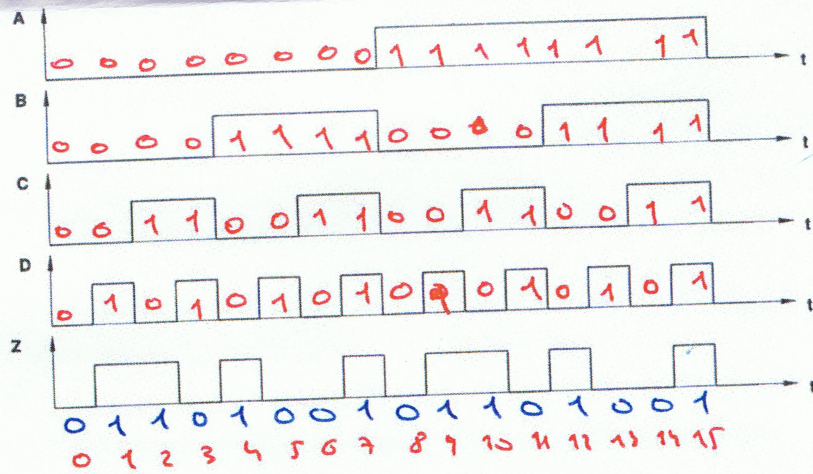 A 0 0 0 0 0 0 0 0 1 1 1 1 1 1 1 1 t
B 0 0 0 0 1 1 1 1 0 0 0 0 1 1 1 1 t
C 0 0 1 1 0 0 1 1 0 0 1 1 0 0 1 1 t
D 0 1 0 1 0 1 0 1 0 1 0 1 0 1 0 1 t
Z t
0 1 1 0 1 0 0 1 0 1 1 0 1 0 0 1
0 1 2 3 4 5 6 7 8 9 10 11 12 13 14 15